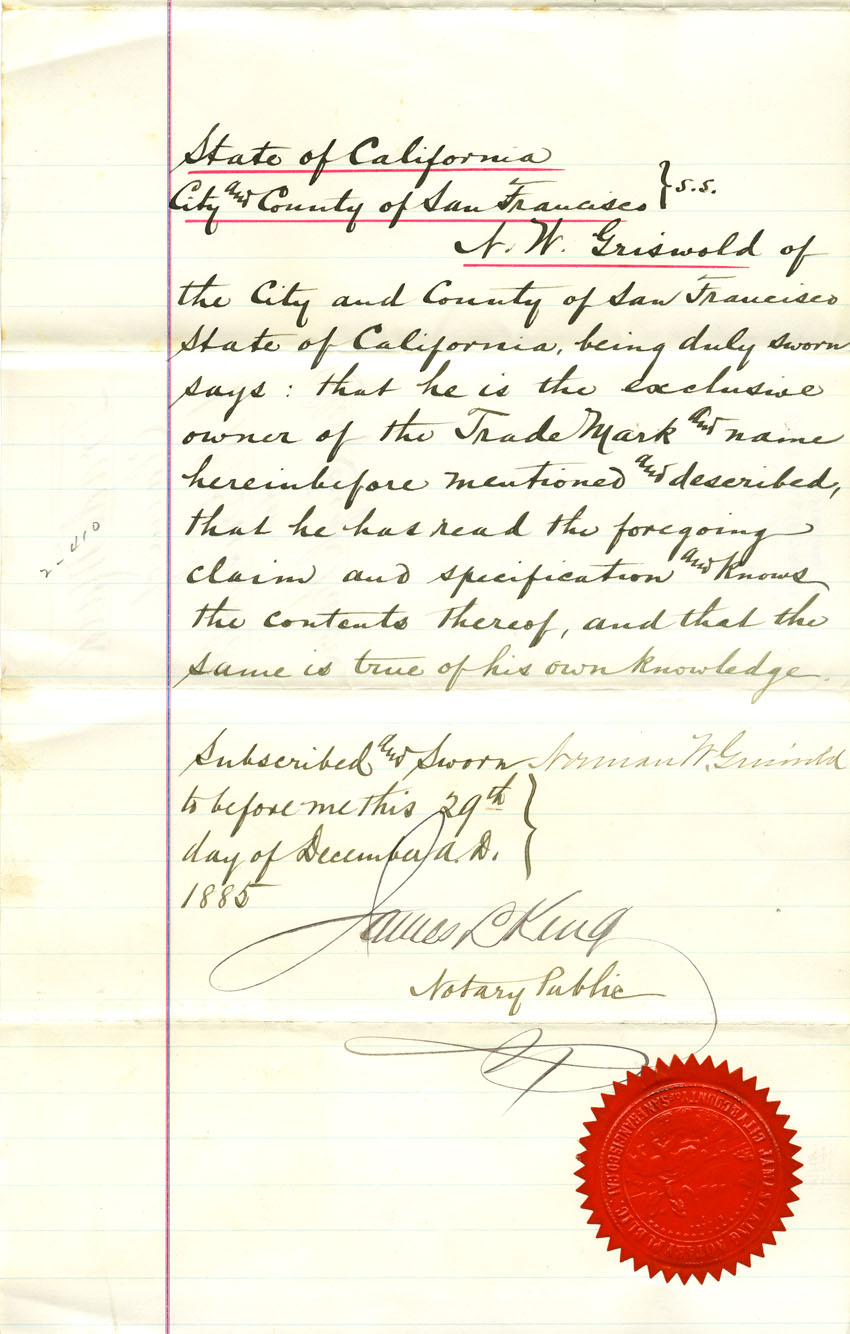 State of California
City and County of San Francisco } s.s.
N. W. Griswold of
the City and County of San Francisco
State of California, being duly sworn
says : that he is the exclusive
owner of the Trade Mark and name
hereinbefore mentioned and described,
that he has read the foregoing
claim and specification and knows
the contents thereof, and that the
same is true of his own knowledge.
2-410
Subscribed and Sworn Norman W. Griswold
to before me this 29th
day of December A.D.
1885
James L King
Notary Public
JAMES L. KING NOTARY PUBLIC
CITY & COUNTY OF SAN FRANCISCO, CAL.